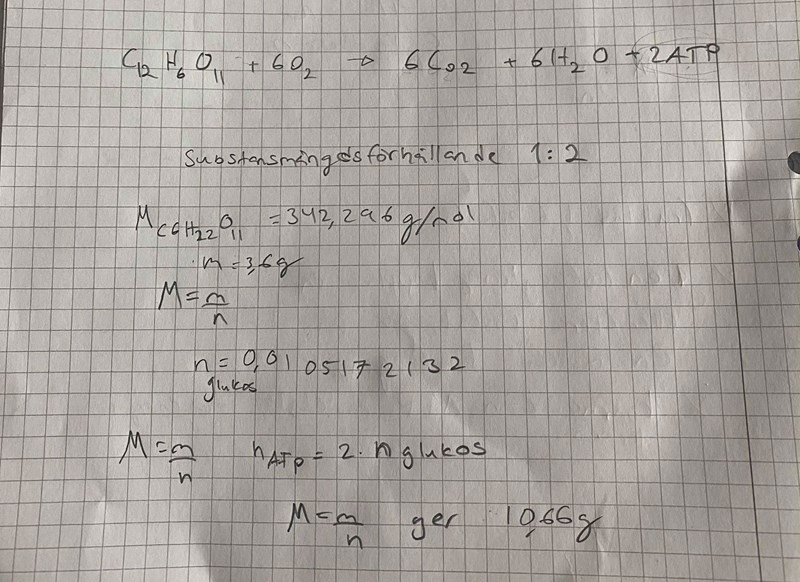 C12H6O11 + 6O2 → 6CO2 + 6H2O + 2ATP
Substansmängdsförhållande 1:2
MC6H22O11 = 342,296 g/mol
m = 3,6g
M = m/n
n glukos = 0,0105172132
M = m/n nATP = 2·n glukos
M = m/n ger 10,66g